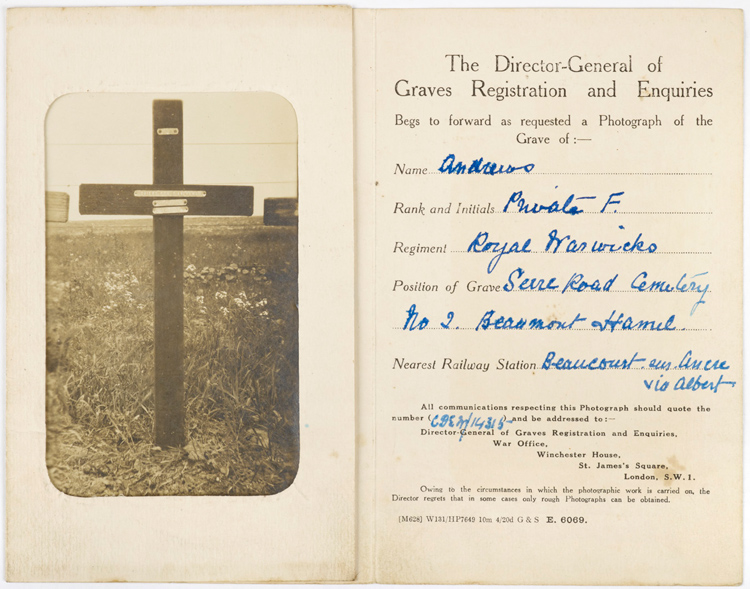 The Director-General of
Graves Registration and Enquiries
Begs to forward as requested a Photograph of the
Grave of :—
Name Andrews
Rank and Initials Private F.
Regiment Royal Warwicks
Position of Grave Serre Road Cemetery
No 2. Beaumont Hamel.
Nearest Railway Station Beaucourt sur Ancre
via Albert
All communications respecting this Photograph should quote the
number ( ) and be addressed to :—
Director-General of Graves Registration and Enquiries,
War Office,
Winchester House,
St. James's Square,
London, S.W.1.
Owing to the circumstances in which the photographic work is carried on, the
Director regrets that in some cases only rough Photographs can be obtained.
[M628] W131/HP7649 10m 4/20d G & S E. 6069.